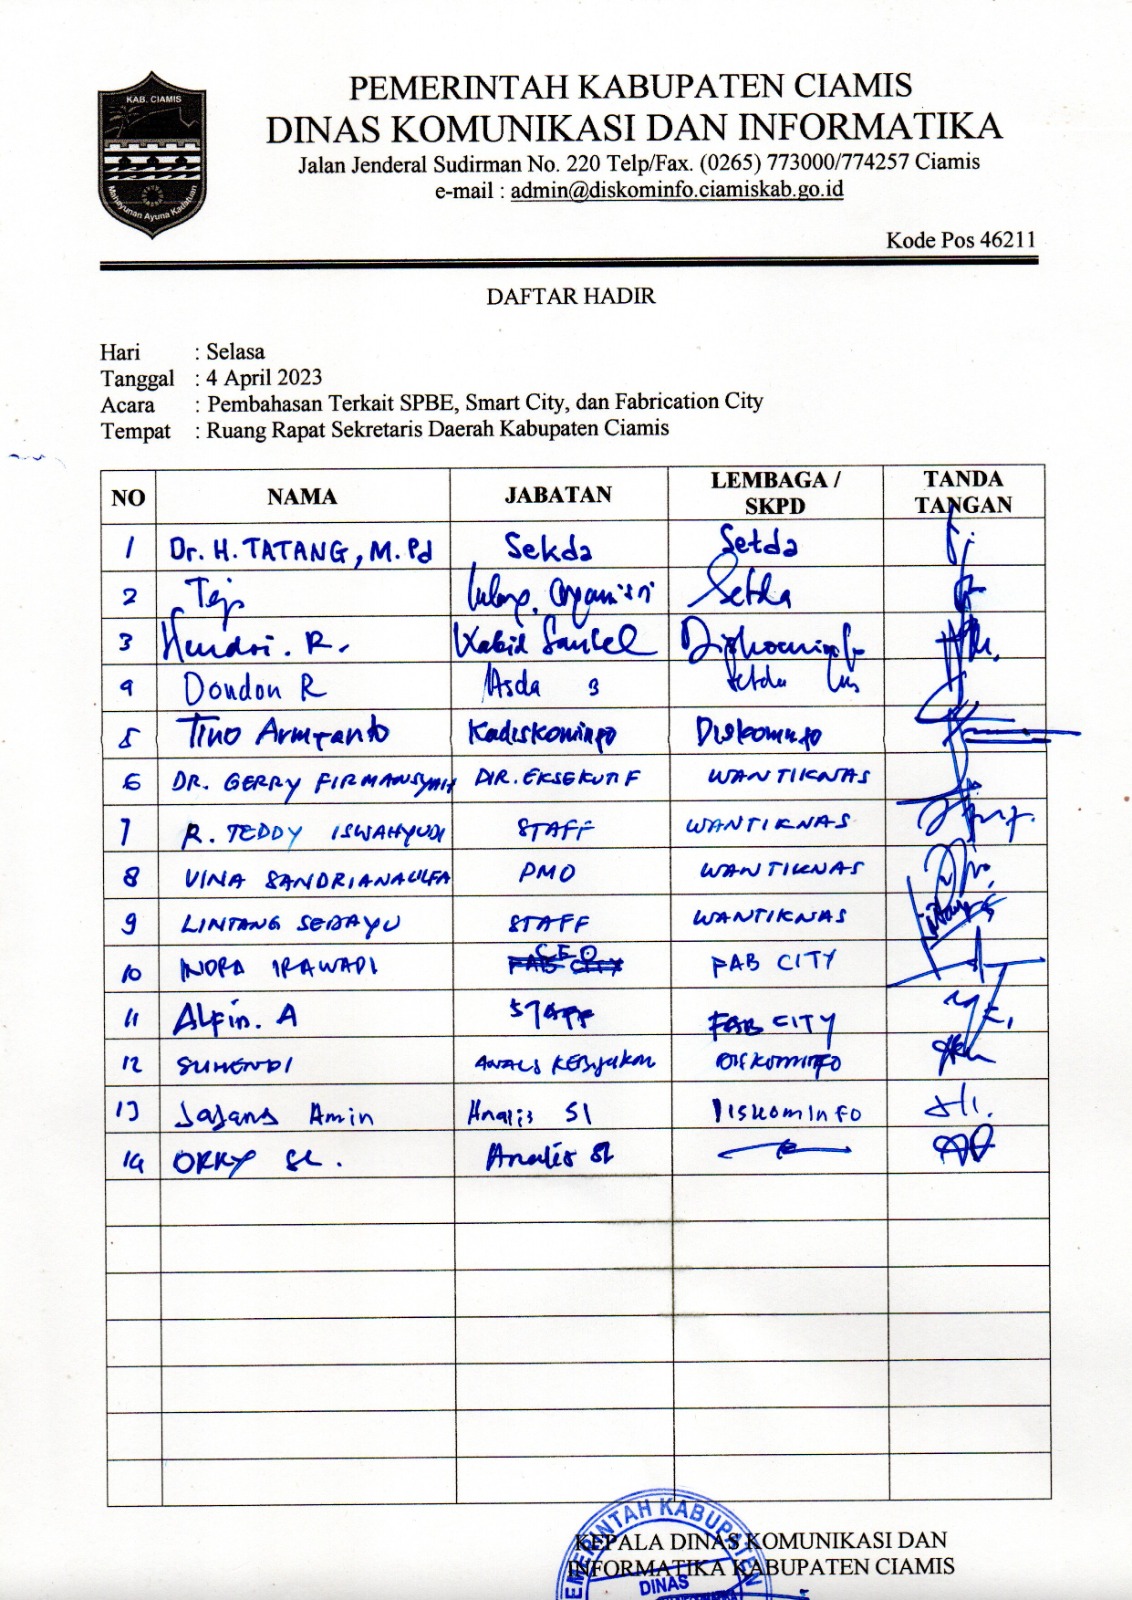 KAB. CIAMIS
Mahayunan Ayuna Kadatuan
PEMERINTAH KABUPATEN CIAMIS
DINAS KOMUNIKASI DAN INFORMATIKA
Jalan Jenderal Sudirman No. 220 Telp/Fax. (0265) 773000/774257 Ciamis
e-mail : admin@diskominfo.ciamiskab.go.id
Kode Pos 46211
DAFTAR HADIR
Hari : Selasa
Tanggal : 4 April 2023
Acara : Pembahasan Terkait SPBE, Smart City, dan Fabrication City
Tempat : Ruang Rapat Sekretaris Daerah Kabupaten Ciamis
NO NAMA JABATAN LEMBAGA / SKPD TANDA TANGAN
1 Dr. H. TATANG, M.Pd Sekda Setda
2 Setda
3 Hendri. R. Kabid Diskominfo
4 Dondon R Asda 3 Setda
5 Tino Armyanto Kadiskominfo Diskominfo
6 DR. GERRY FIRMANSYAH DIR. EKSEKUTIF WANTIKNAS
7 R. TEDDY ISWAHYUDI STAFF WANTIKNAS
8 VINA SANDRIANAULFA PMO WANTIKNAS
9 LINTANG SEBAYU STAFF WANTIKNAS
10 INDRA IRAWADI CEO FAB CITY
11 Alfin. A STAFF FAB CITY
12 SUHENDI ANALIS KEBIJAKAN DISKOMINFO
13 Jajang Amin Analis SI DISKOMINFO
14 ORKY Analis SI
PEMERINTAH KABUPATEN
KEPALA DINAS KOMUNIKASI DAN
INFORMATIKA KABUPATEN CIAMIS
DINAS